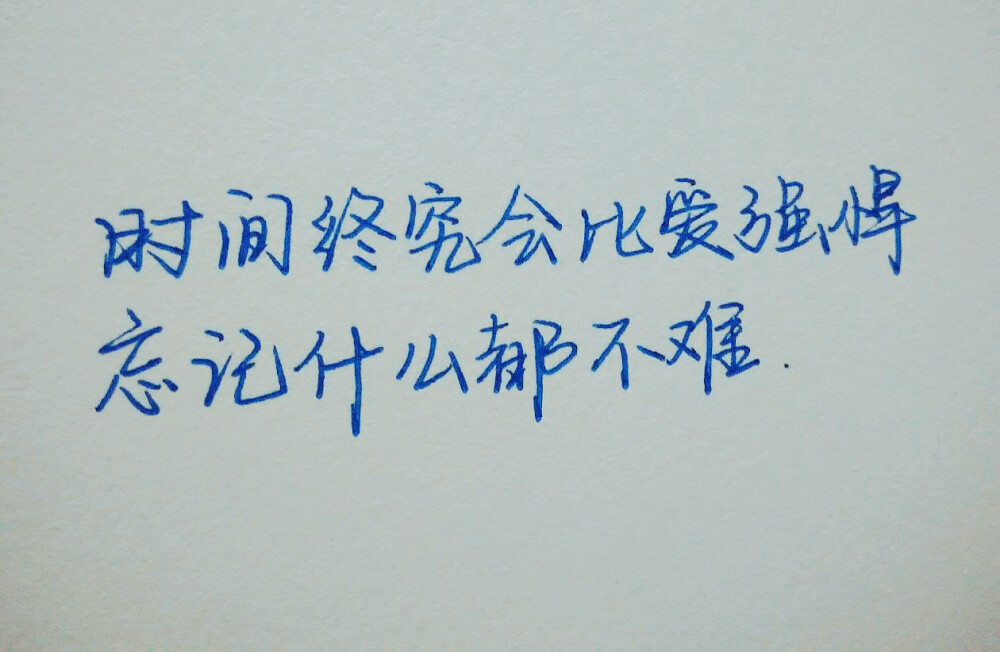 时间终究会比爱强悍
忘记什么都不难.